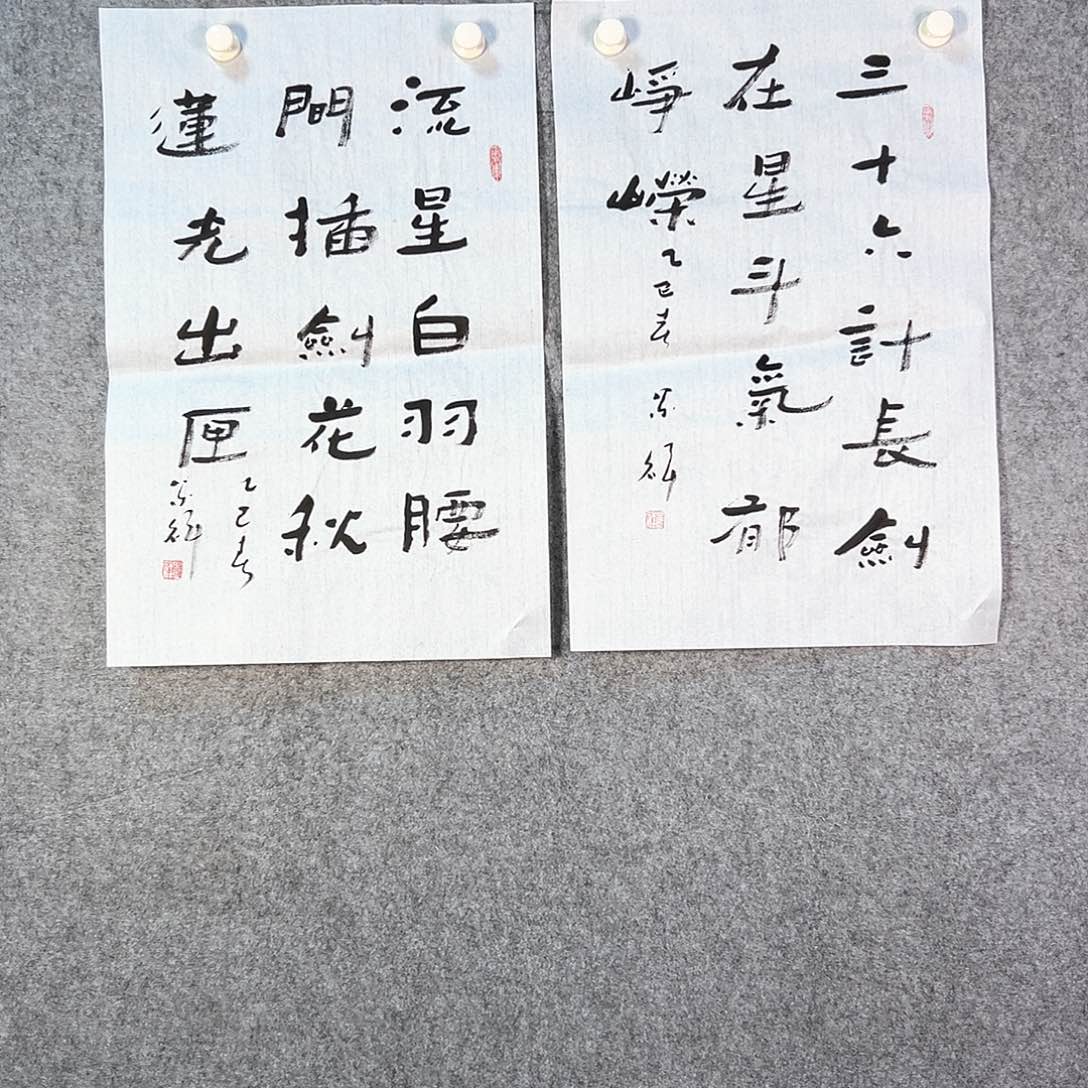 三十六計長劍
在星斗氣郁
崢嶸
乙巳春
流星白羽腰
間插劍花秋
蓮光出匣
乙巳春